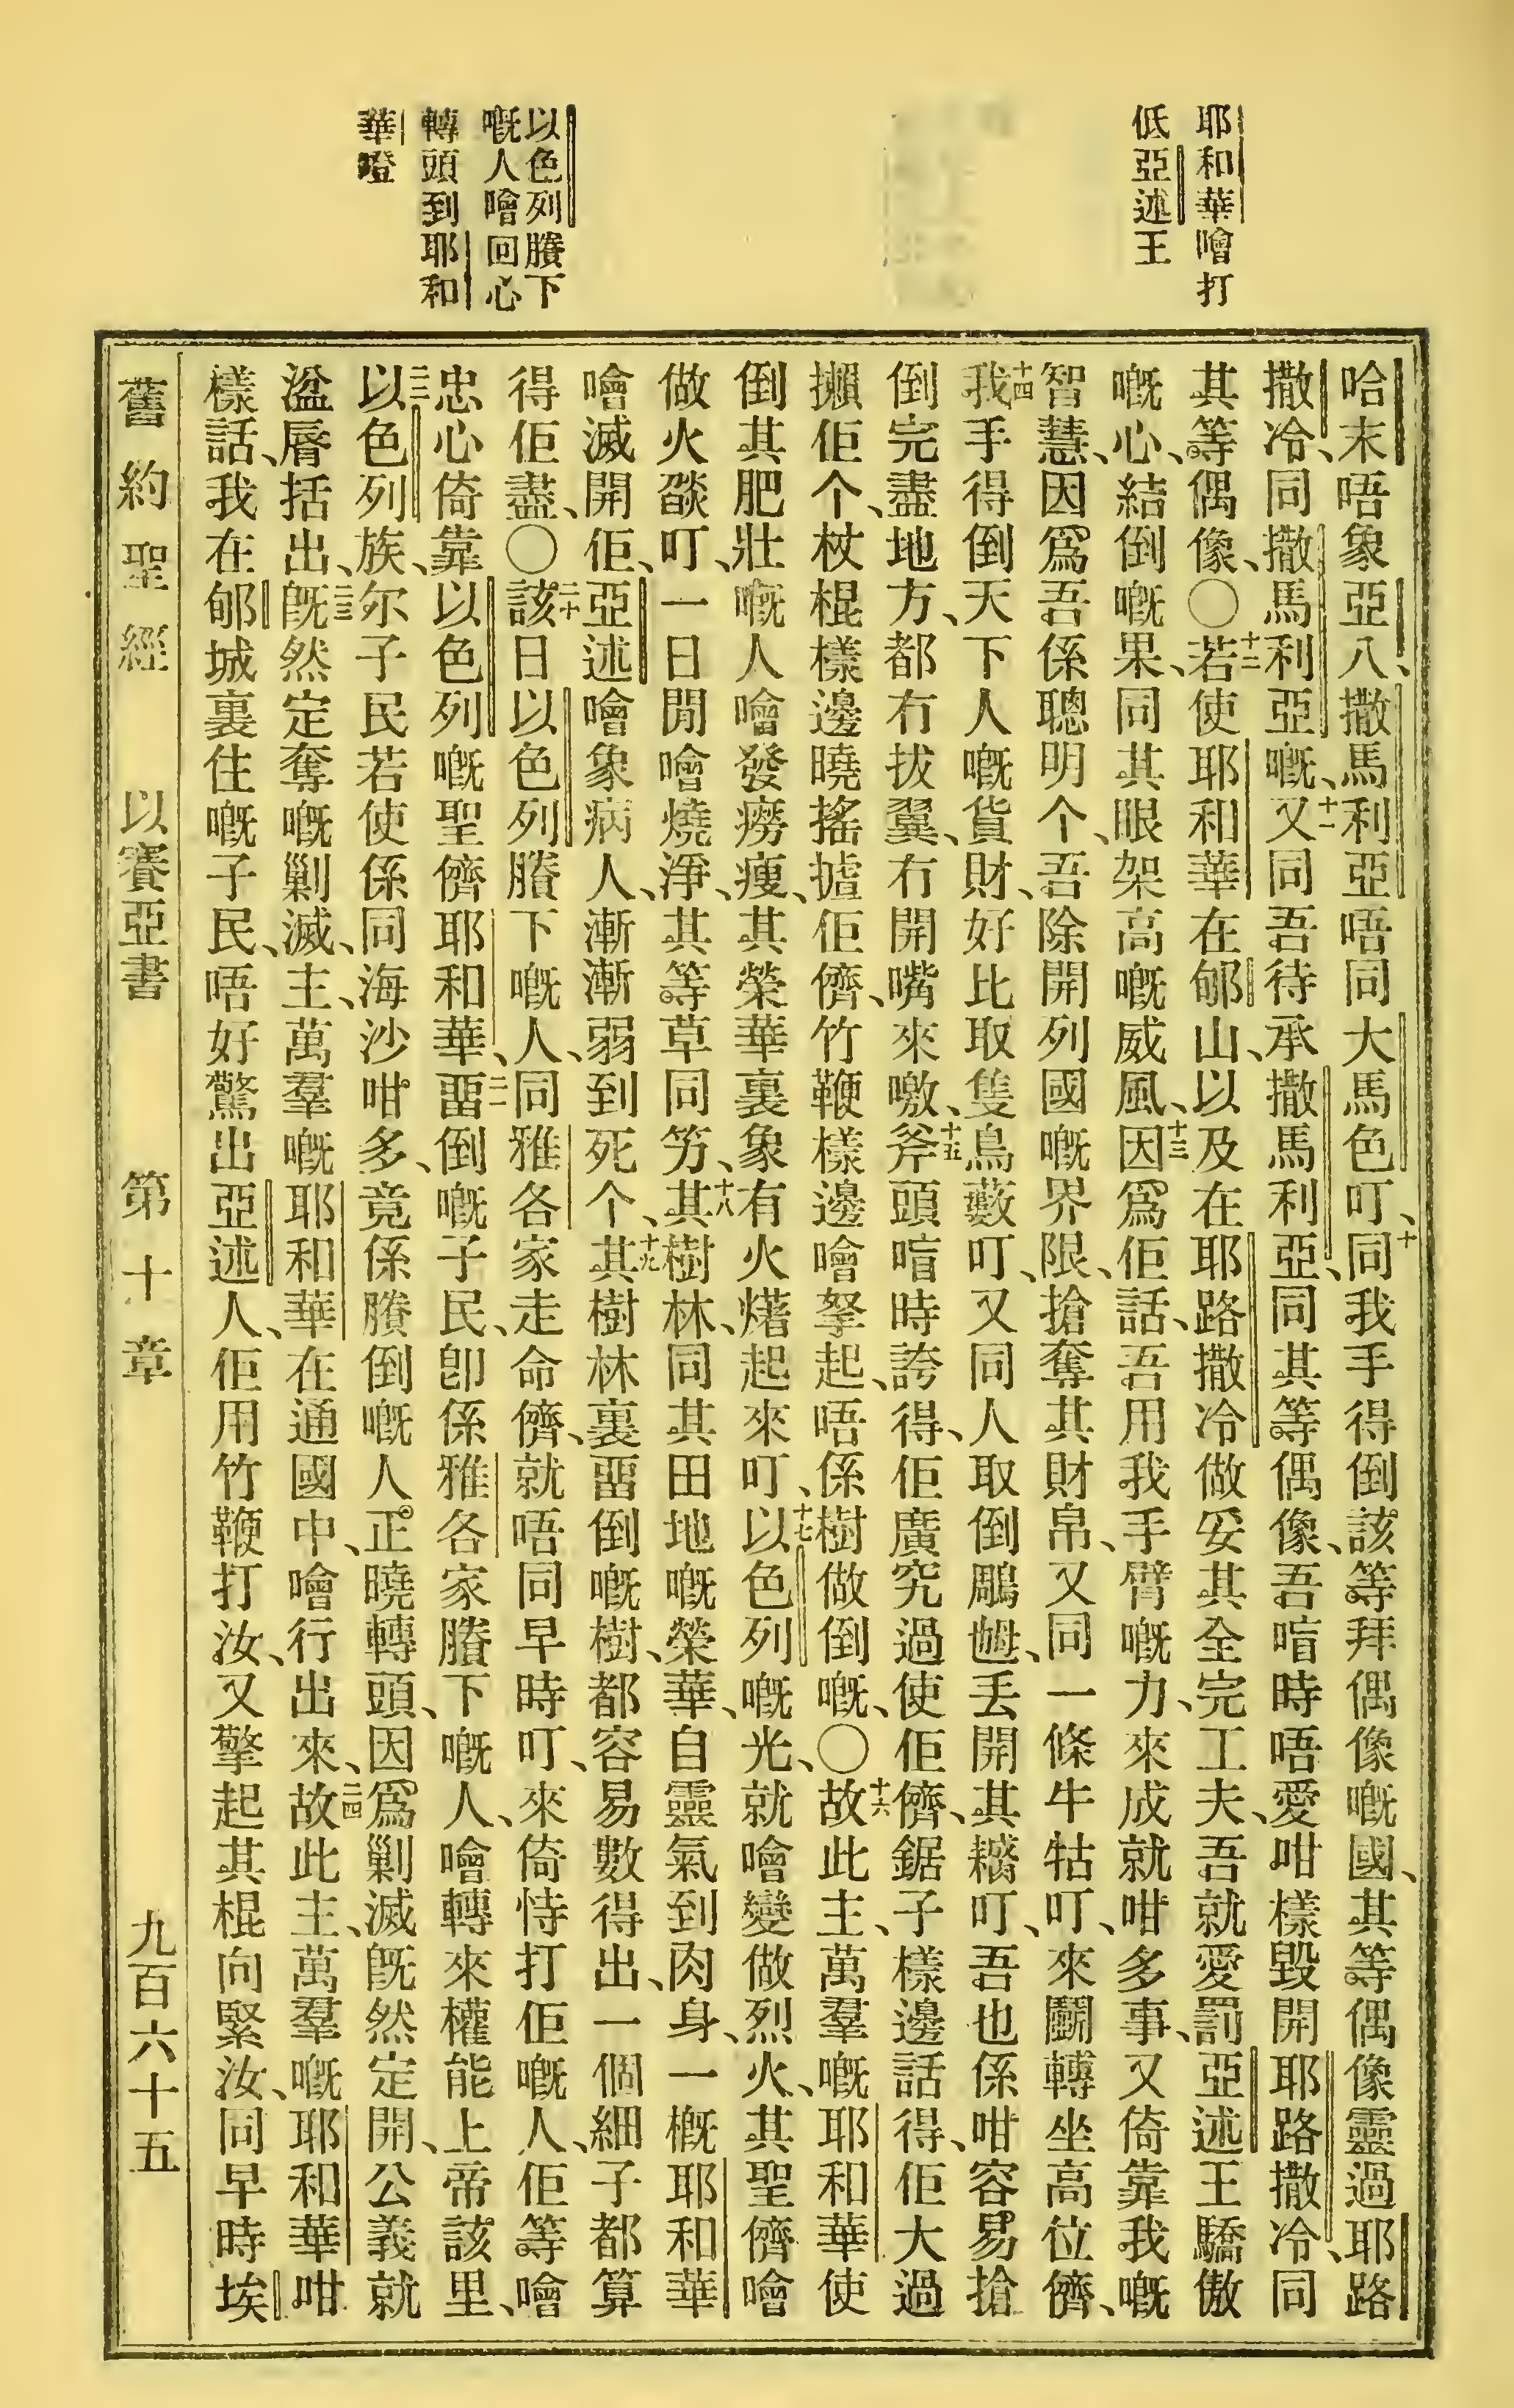 耶和華噲打
低亞述王
以色列賸下
嘅人噲回心
轉頭到耶和
華蹬
哈末唔象亞八、撒馬利亞唔同大馬色叮、十同我手得倒該等拜偶像嘅國、其等偶像靈過耶路
撒冷、同撒馬利亞嘅、十一又同吾待承撒馬利亞、同其等偶像、吾㫔時唔愛咁樣毀開耶路撒冷、同
其等偶像、〇十二若使耶和華在郇山、以及在耶路撒冷做妥其全完工夫、吾就愛罰亞述王驕傲
嘅心、結倒嘅果、同其眼架高嘅威風、十三因爲佢話、吾用我手臂嘅力、來成就咁多事、又倚靠我嘅
智慧、因爲吾係聰明个、吾除開列國嘅界限、搶奪其財帛、又同一條牛牯叮、來鬭轉坐高位儕、
十四我手得倒天下人嘅貨財、好比取隻鳥藪叮、又同人取倒鵰𡜵、丟開其糌叮、吾也係咁容易搶
倒完盡地方、都冇拔翼、冇開嘴來噭、十五斧頭㫔時誇得、佢廣究過使佢儕、鋸子樣邊話得、佢大過
攋佢个、杖棍樣邊曉搖摣佢儕、竹鞭樣邊噲拏起、唔係樹做倒嘅、〇十六故此主、萬羣嘅耶和華使
倒其肥壯嘅人噲發癆瘦、其榮華裏象有火𤏸起來叮、十七以色列嘅光、就噲變做烈火、其聖儕噲
做火燄叮、一日閒噲燒淨、其等草同竻、十八其樹林、同其田地嘅榮華、自靈氣到肉身、一概耶和華
噲滅開佢、亞述噲象病人、漸漸弱到死个、十九其樹林裏畱倒嘅樹、都容易數得出、一個細子都算
得佢盡、〇二十該日以色列賸下嘅人、同雅各家走命儕、就唔同早時叮、來倚恃打佢嘅人、佢等噲
忠心倚靠以色列嘅聖儕耶和華、二一畱倒嘅子民、卽係雅各家賸下嘅人、噲轉來權能上帝該里、
二二以色列族、尔子民若使係同海沙咁多、竟係賸倒嘅人正曉轉頭、因爲剿滅旣然定開、公義就
湓脣括出、二三旣然定奪嘅剿滅、主、萬羣嘅耶和華在通國中、噲行出來、二四故此主、萬羣嘅耶和華咁
樣話、我在郇城裏住嘅子民、唔好驚出亞述人、佢用竹鞭打汝、又擎起其棍向緊汝、同早時埃
舊約聖經　以賽亞書　第十章　九百六十五